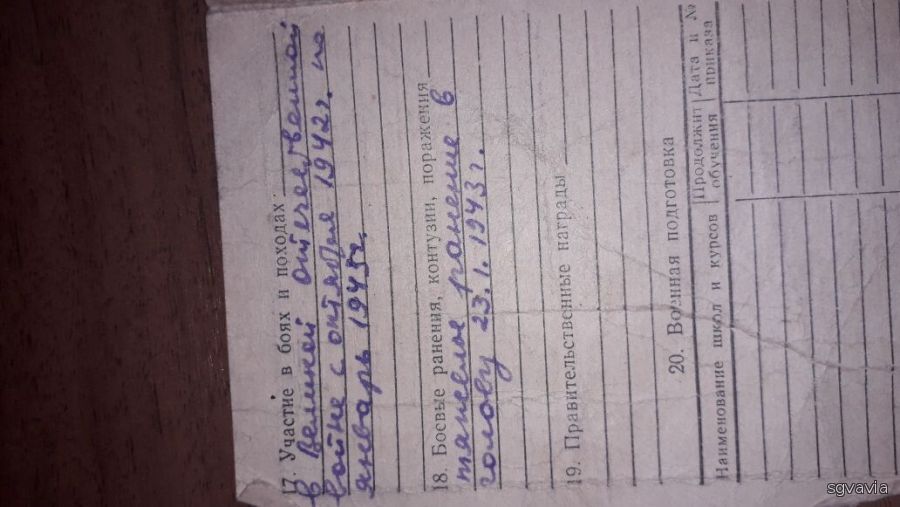 17. Участие в боях и походах
в Великой отечественной
войне с октября 1942 г. по
январь 1943 г.
18. Боевые ранения, контузии, поражения
тяжелое ранение в
голову 23.1.1943 г.
19. Правительственные награды
20. Военная подготовка
Наименование школ и курсов
Продолжит обучения
Дата и № приказа
sgvavia